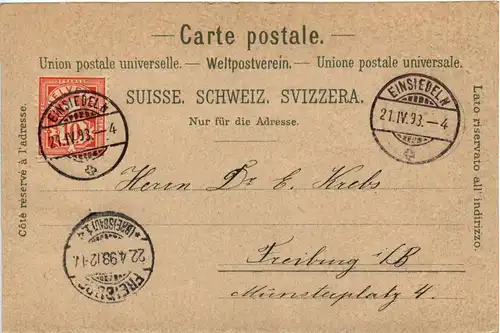 — Carte postale. —
Union postale universelle. — Weltpostverein. — Unione postale universale.
SUISSE. SCHWEIZ. SVIZZERA.
Nur für die Adresse.
Côté réservé à l'adresse.
Lato riservato all'indirizzo.
EINSIEDELN
21.IV.93.–4
EINSIEDELN
21.IV.93.–4
Herrn Dr E. Krebs
Freiburg i/B
Münsterplatz 4.
FREIBURG
22.4.93.12-1
(BREISGAU)